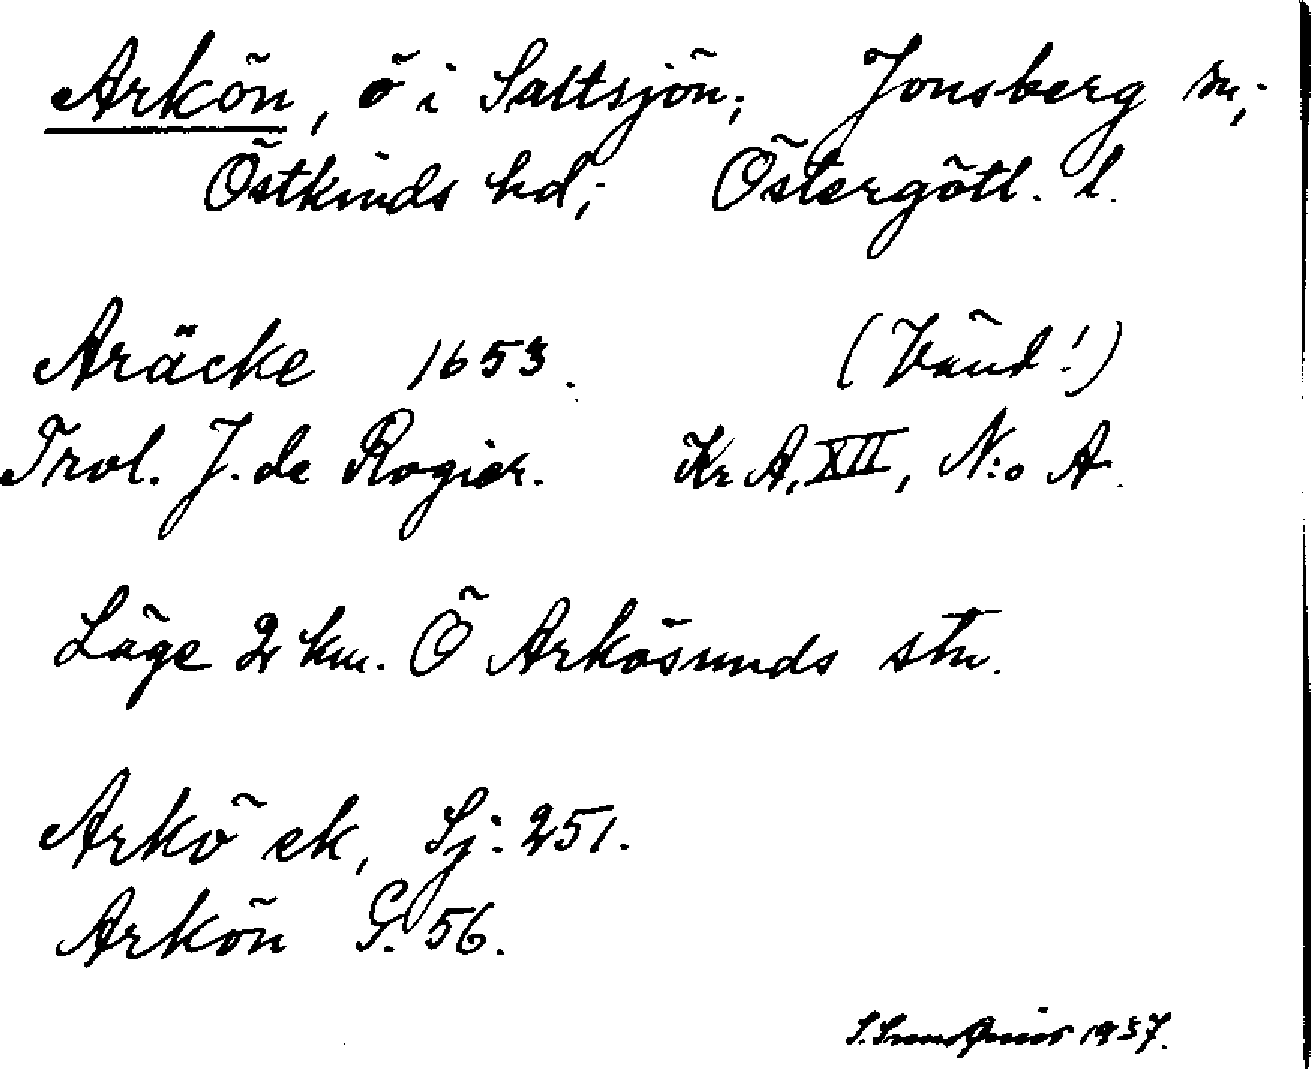 Arkön, ö i Saltsjön; Jonsberg sn;
Östkinds hd; Östergötl. l.
Aräcke 1653. (Vänd!)
Trol. J. de Rogier. Kr A, XII, N:o A.
Läge 2 km. Ö Arkösunds stn.
Arkö ek, Sj. 251.
Arkön G. 56.
1937.